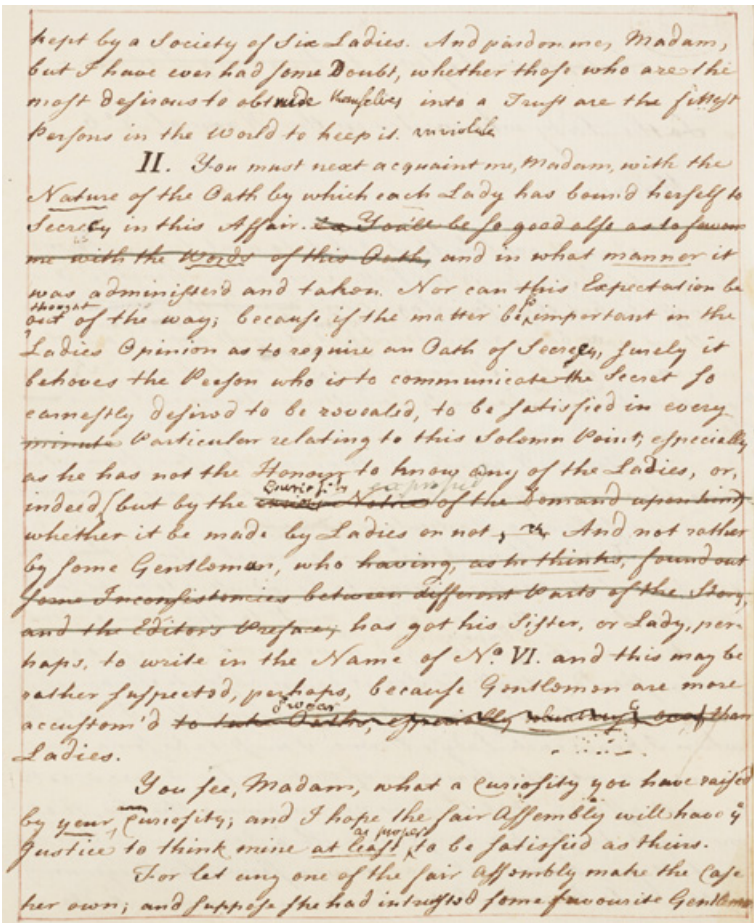 kept by a Society of Six Ladies. And pardon me, Madam,
but I have ever had some Doubt, whether those who are the
most desirous to obtrude themselves into a Trust are the fittest
Persons in the World to keep it inviolate
II. You must next acquaint me, Madam, with the
Nature of the Oath by which each Lady has bound herself to
Secrecy in this Affair. You'll be so good also as to favour
me with the Words of this Oath, and in what manner it
was administer'd and taken. Nor can this Expectation be
thought
out of the way; because if the matter be so important in the
Ladies Opinion as to require an Oath of Secrecy, surely it
behoves the Person who is to communicate the Secret so
earnestly desired to be revealed, to be satisfied in every
minute Particular relating to this solemn Point; especially
as he has not the Honour to know any of the Ladies, or,
Curiosity expressed
indeed (but by the Nature of the Demand upon him)
whether it be made by Ladies or not, And not rather
by some Gentleman, who having, as he thinks, found out
some Inconsistencies between different Parts of the Story,
and the Editor's Preface, has got his Sister, or Lady, per-
haps, to write in the Name of No. VI. and this may be
rather suspected, perhaps, because Gentlemen are more
swear
accustom'd to take Oaths, especially than
Ladies.
You see, Madam, what a Curiosity you have raised
by your Curiosity; and I hope the fair Assembly will have ye
as proper
Justice to think mine at least to be satisfied as theirs.
For let any one of the fair Assembly make the Case
her own; and suppose she had intrusted some favourite Gentleman